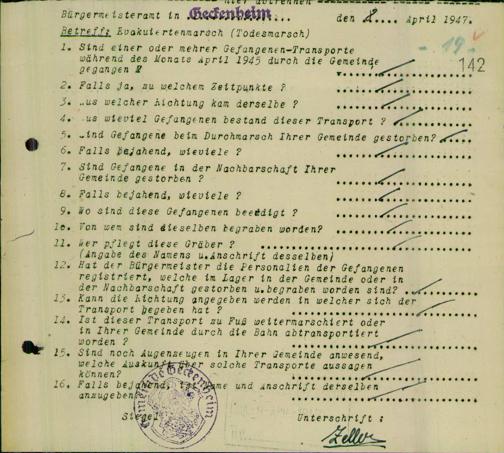 hier abtrennen
Bürgermeisteramt in Geckenheim.... den 8.... April 1947.
Betreff: Evakuiertenmarsch (Todesmarsch)
19
142
1. Sind einer oder mehrer Gefangenen-Transporte
während des Monats April 1945 durch die Gemeinde
gegangen ?
2. Falls ja, zu welchem Zeitpunkte ?
3. Aus welcher Richtung kam derselbe ?
4. Aus wieviel Gefangenen bestand dieser Transport ?
5. Sind Gefangene beim Durchmarsch Ihrer Gemeinde gestorben?
6. Falls bejahend, wieviele ?
7. Sind Gefangene in der Nachbarschaft Ihrer
Gemeinde gestorben ?
8. Falls bejahend, wieviele ?
9. Wo sind diese Gefangenen beerdigt ?
10. Von wem sind dieselben begraben worden?
11. Wer pflegt diese Gräber ?
(Angabe des Namens u.Anschrift desselben)
12. Hat der Bürgermeister die Personalien der Gefangenen
registriert, welche im Lager in der Gemeinde oder in
der Nachbarschaft gestorben u.begraben worden sind?
13. Kann die Richtung angegeben werden in welcher sich der
Transport begeben hat ?
14. Ist dieser Transport zu Fuß weitermarschiert oder
in Ihrer Gemeinde durch die Bahn abtransportiert
worden ?
15. Sind noch Augenzeugen in Ihrer Gemeinde anwesend,
welche Auskunft über solche Transporte aussagen
können?
16. Falls bejahend, ist Name und Anschrift derselben
anzugeben
Siegel Unterschrift :
Gemeinde Geckenheim
Zeller